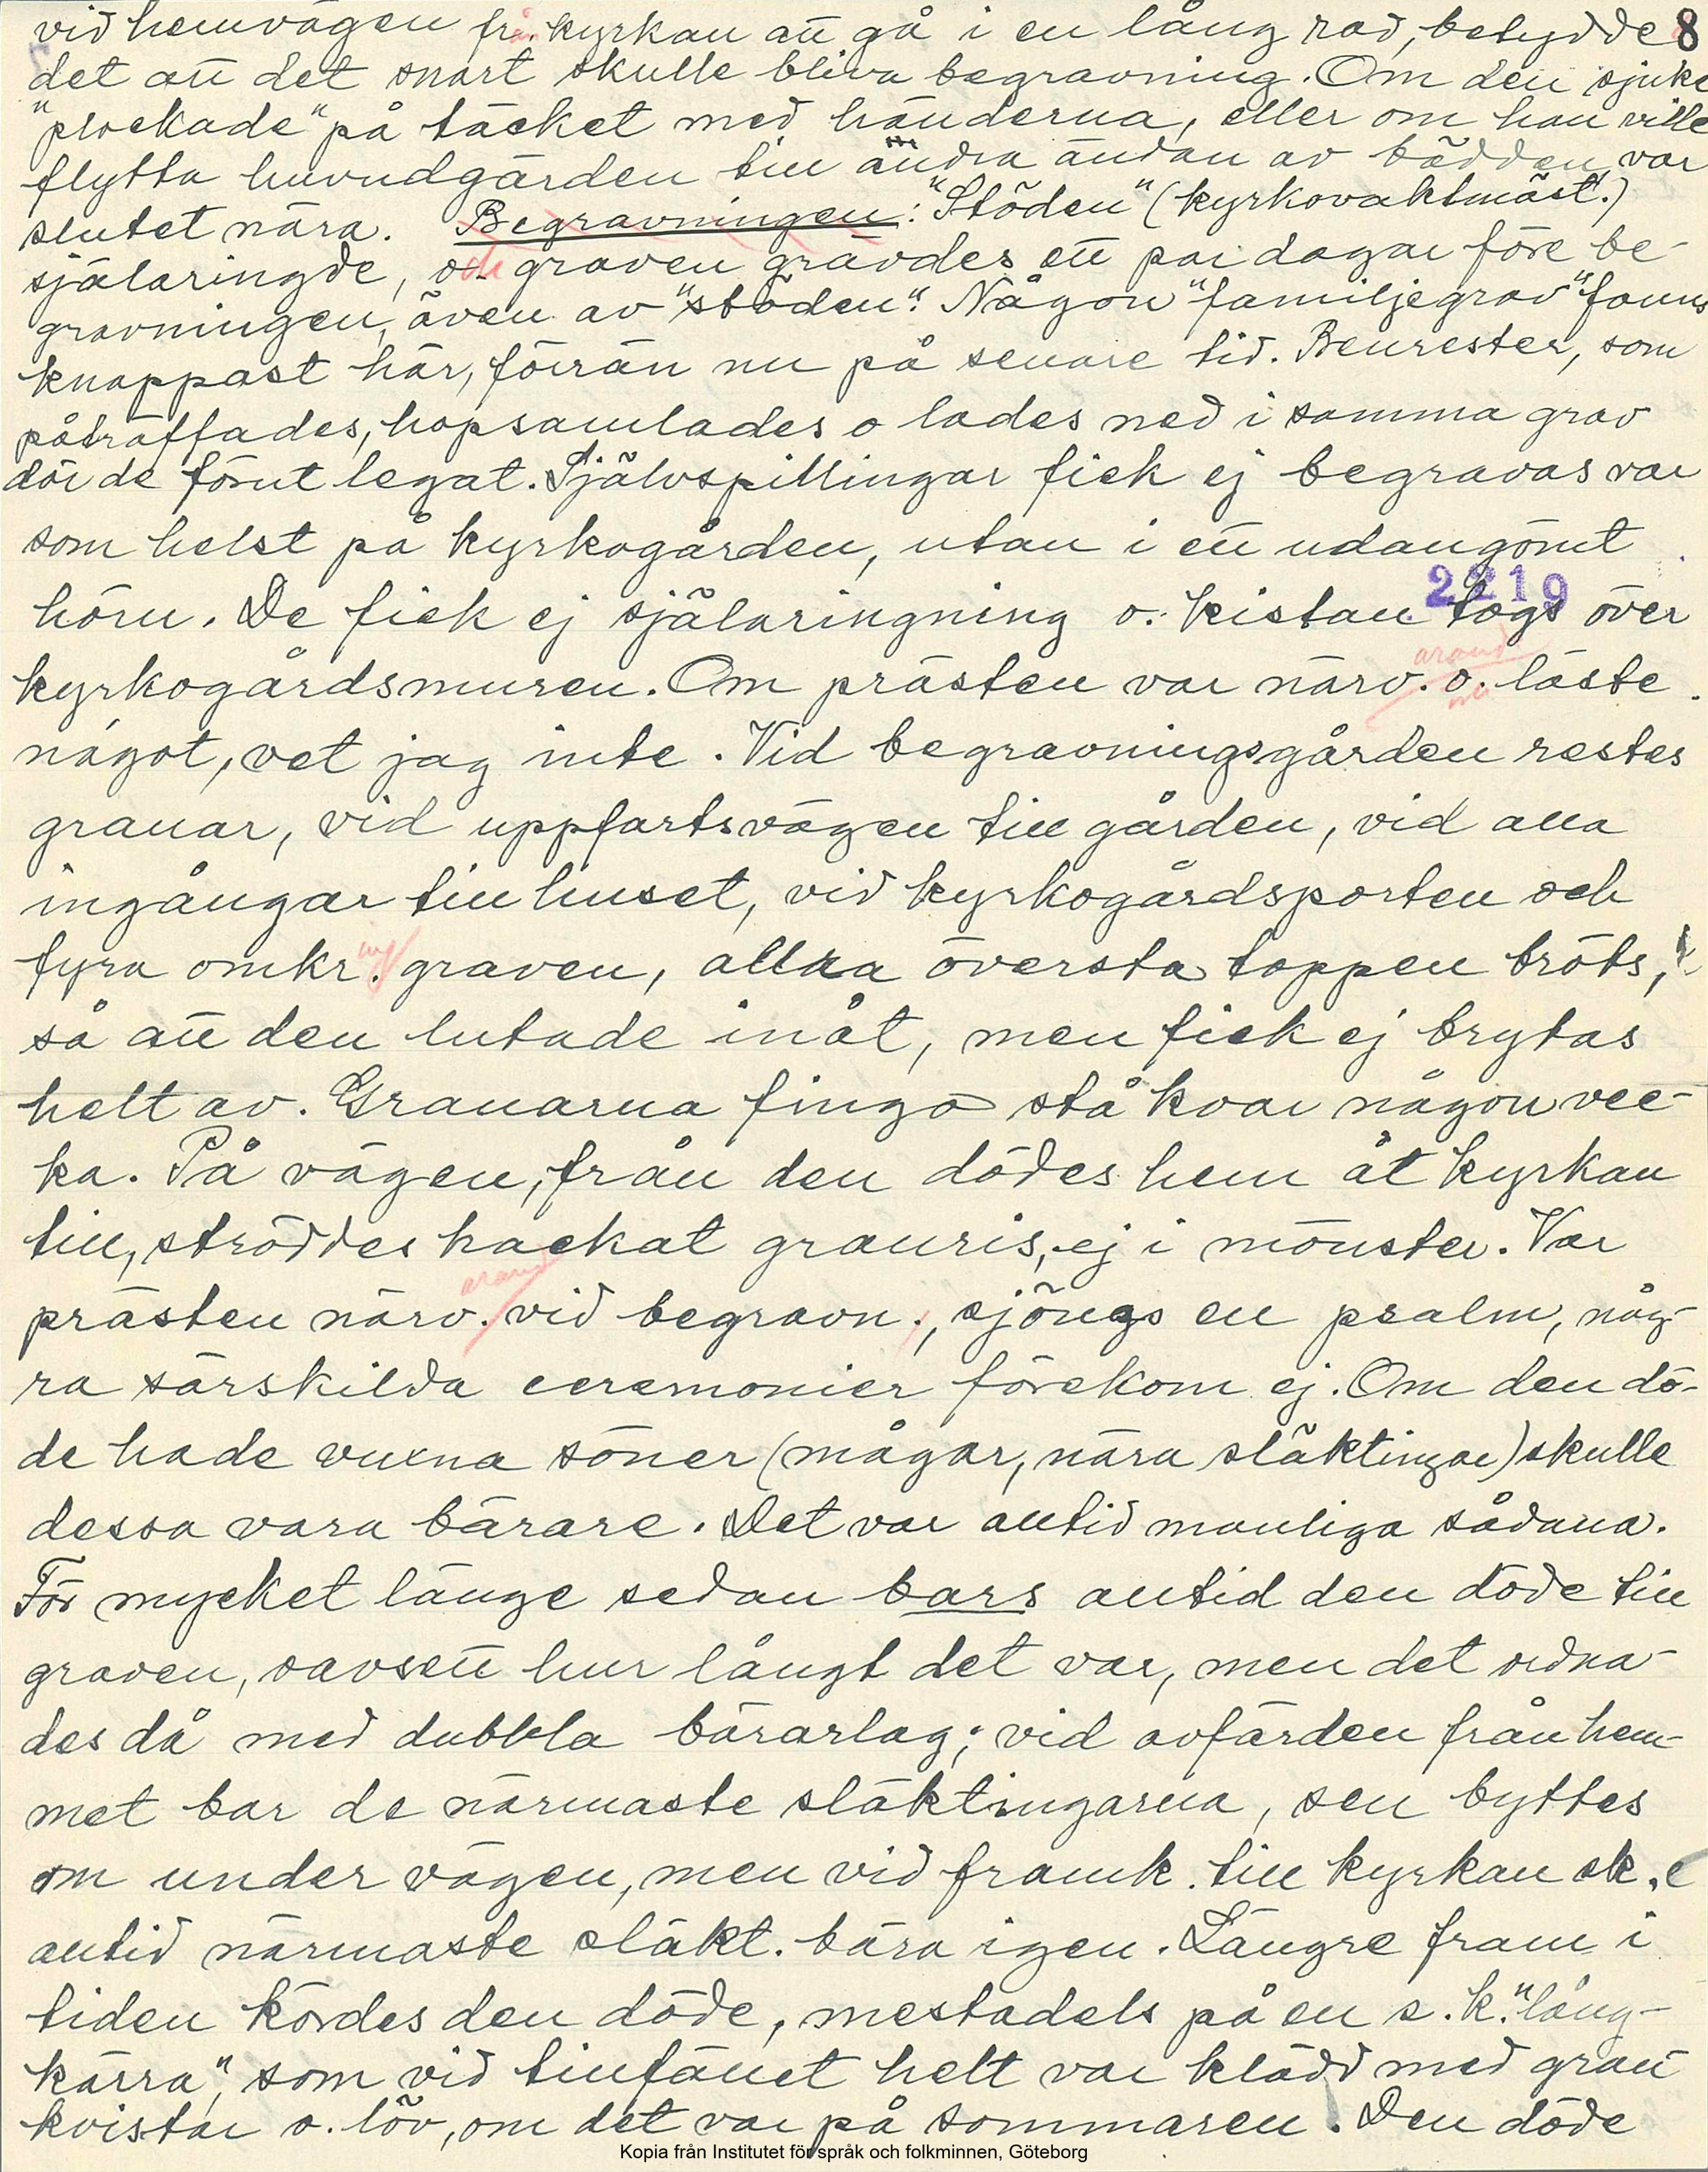 vid hemvägen från kyrkan att gå i en lång rad, betydde 8
det att det snart skulle bliva begravning. Om den sjuke
"plockade" på täcket med händerna, eller om han ville
flytta huvudgärden till andra ändan av bädden, var
slutet nära. Begravningen: "Stöden" (kyrkovaktmäst.)
själaringde, och graven grävdes ett par dagar före be-
gravningen, även av "stöden". Någon "familjegrav" fanns
knappast här, förrän nu på senare tid. Benrester, som
påträffades, hopsamlades o lades ned i samma grav
där de förut legat. Självspillingar fick ej begravas var
som helst på kyrkogården, utan i ett undangömt
2219
hörn. De fick ej själaringning o. kistan togs över
kyrkogårdsmuren. Om prästen var närv. arande o. läste
något, vet jag inte. Vid begravningsgården restes
granar, vid uppfartsvägen till gården, vid alla
ingångar till huset, vid kyrkogårdsporten och
fyra omkr. ing graven, allra översta toppen bröts,
så att den lutade inåt, men fick ej brytas
helt av. Granarna fingo stå kvar någon vec-
ka. På vägen, från den dödes hem åt kyrkan
till, ströddes hackat granris, ej i mönster. Var
prästen närv. arande vid begravn., sjöngs en psalm, någ-
ra särskilda ceremonier förekom ej. Om den dö-
de hade vuxna söner (mågar, nära släktingar) skulle
dessa vara bärare. Det var alltid manliga sådana.
För mycket länge sedan bars alltid den döde till
graven, oavsett hur långt det var, men det ordna-
des då med dubbla bärarlag; vid avfärden från hem-
met bar de närmaste släktingarna, sen byttes
om under vägen, men vid framk. till kyrkan sk.e
alltid närmaste släkt. bära igen. Längre fram i
tiden kördes den döde, mestadels på en s.k. "lång-
kärra", som vid tillfället helt var klädd med gran
kvistar o. löv, om det var på sommaren. Den döde
Kopia från Institutet för språk och folkminnen, Göteborg